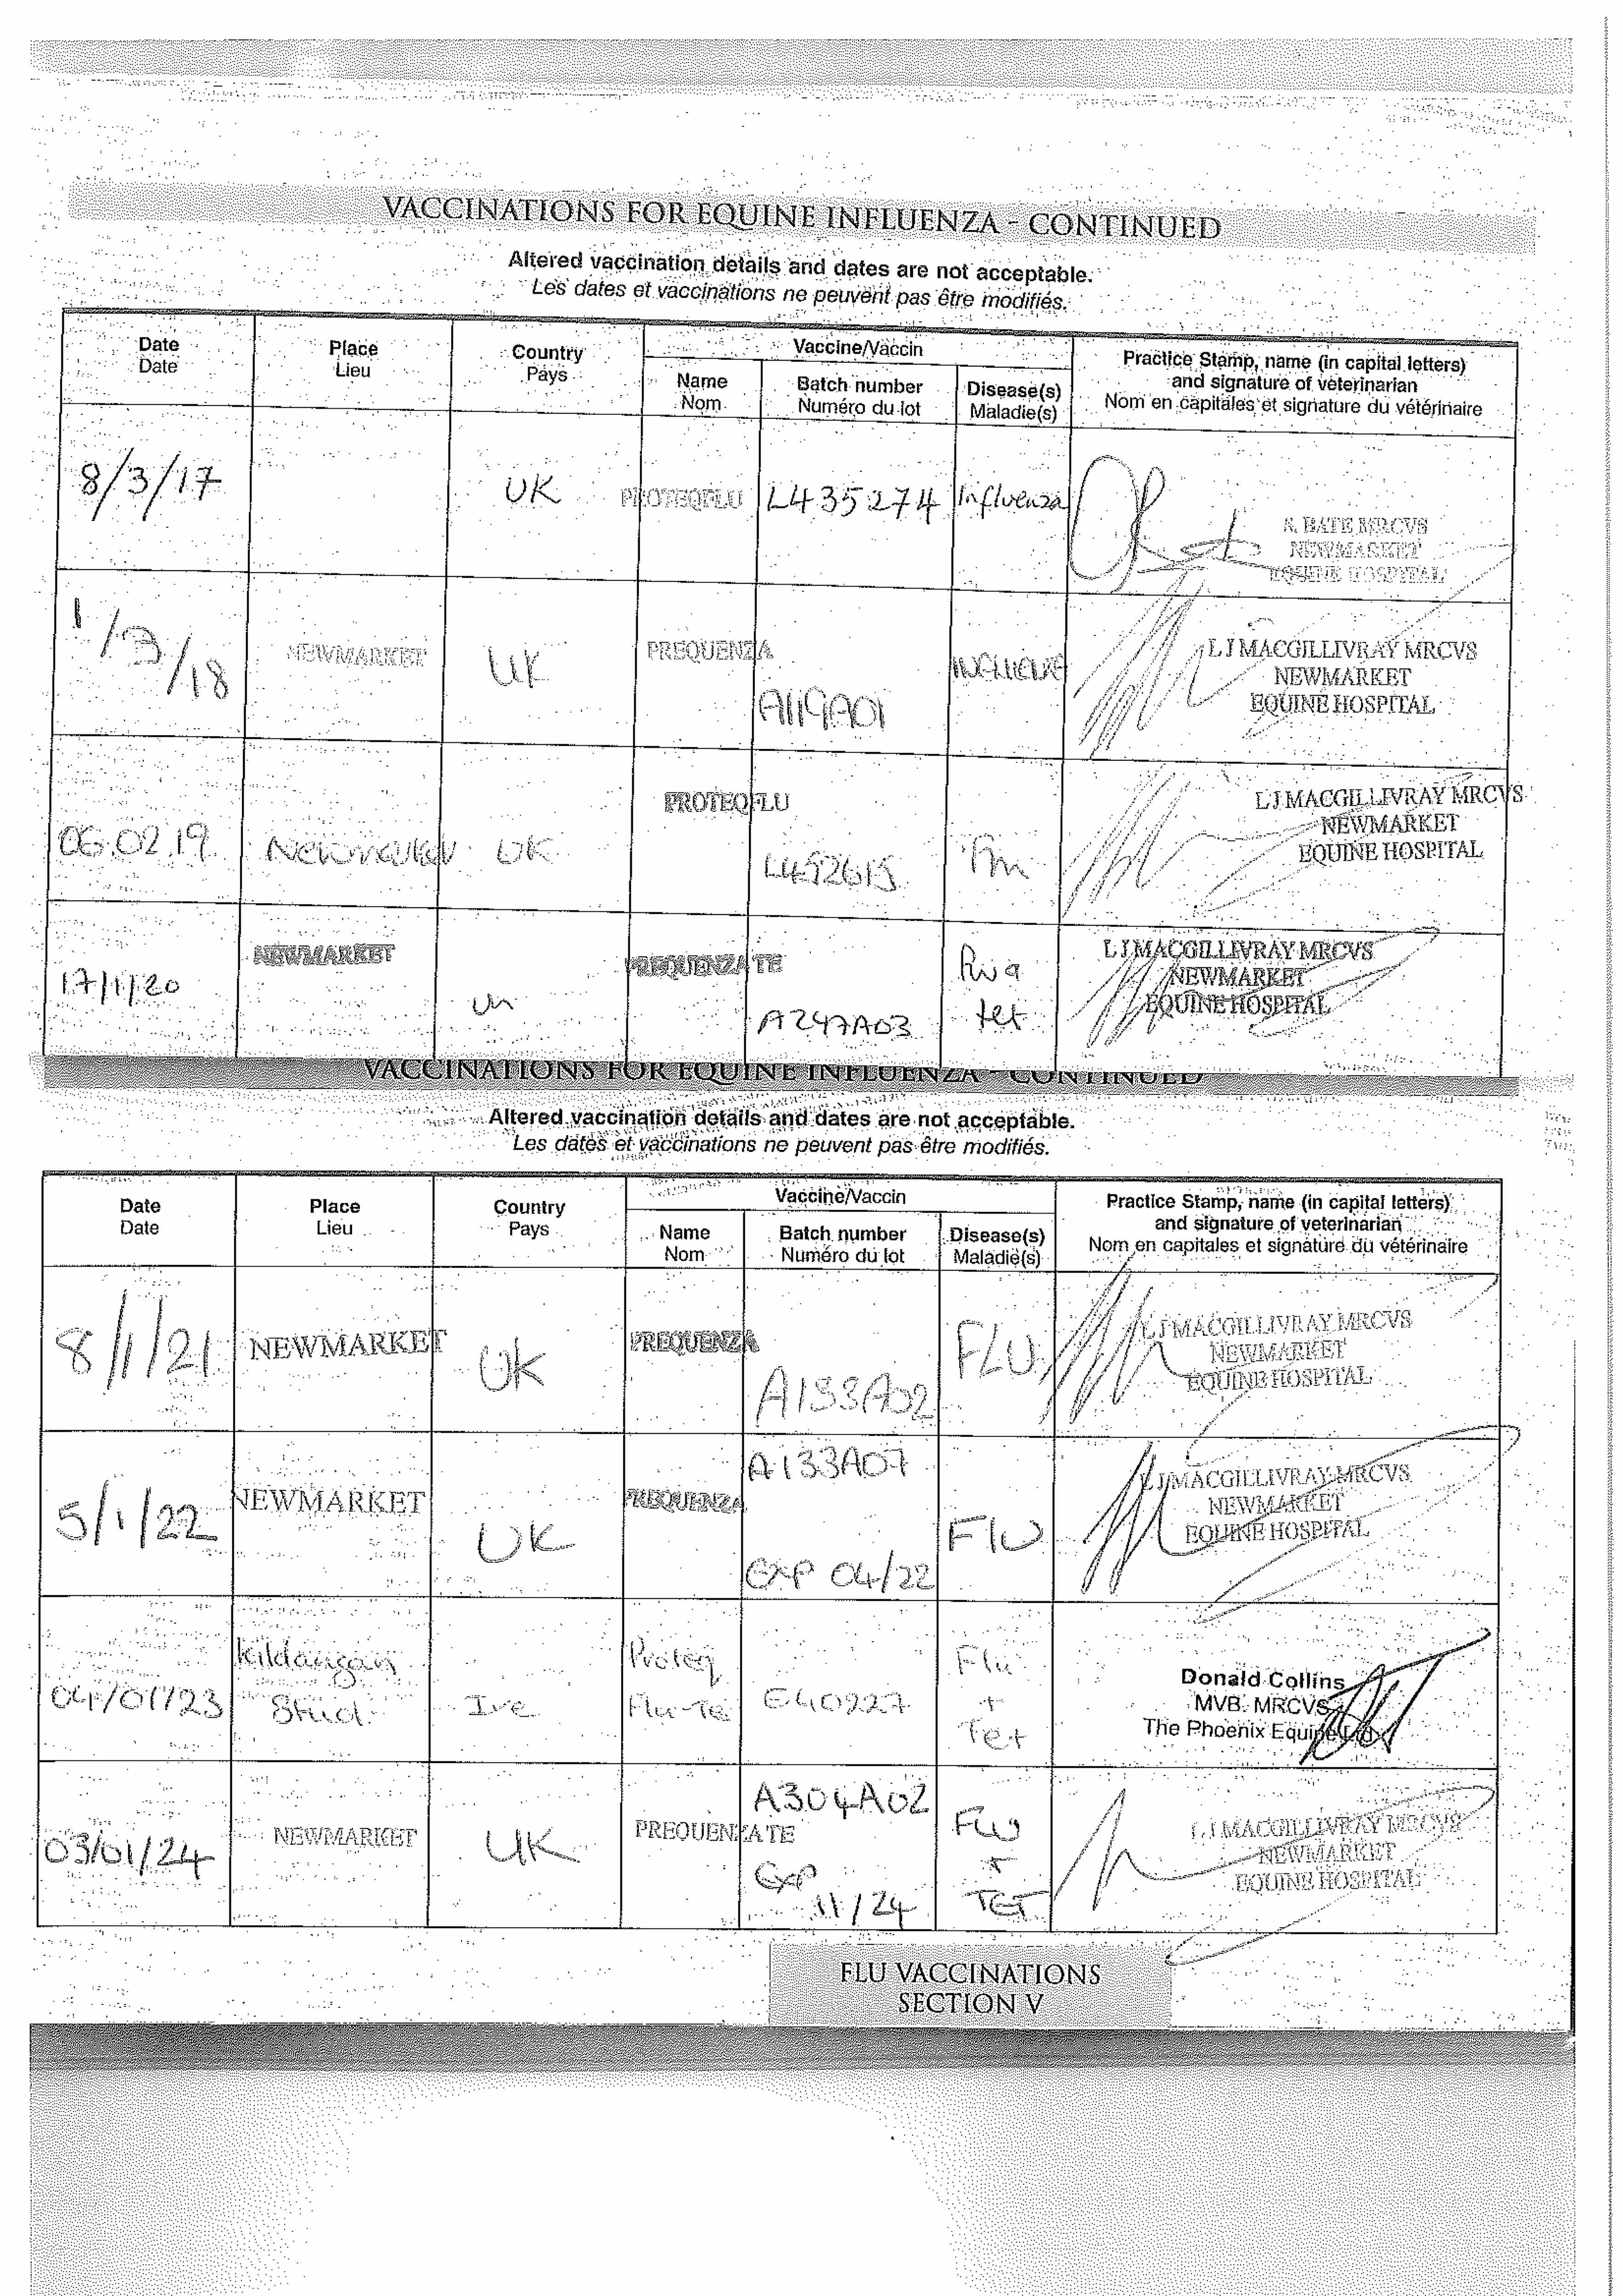 VACCINATIONS FOR EQUINE INFLUENZA - CONTINUED
Altered vaccination details and dates are not acceptable.
Les dates et vaccinations ne peuvent pas être modifiés.
Date Place Country Vaccine/Vaccin Practice Stamp, name (in capital letters)
Date Lieu Pays Name Batch number Disease(s) and signature of veterinarian
Nom Numéro du lot Maladie(s) Nom en capitales et signature du vétérinaire
8/3/17 UK PROTEQFLU L435274 Influenza
S. BATE MRCVS
NEWMARKET
EQUINE HOSPITAL
1/3/18 NEWMARKET UK PREQUENZA A119A01
L J MACGILLIVRAY MRCVS
NEWMARKET
EQUINE HOSPITAL
06.02.19 Newmarket UK PROTEQFLU L452615
L J MACGILLIVRAY MRCVS
NEWMARKET
EQUINE HOSPITAL
17/1/20 NEWMARKET PREQUENZA TE A247A03 tet
L J MACGILLIVRAY MRCVS
NEWMARKET
EQUINE HOSPITAL
VACCINATIONS FOR EQUINE INFLUENZA - CONTINUED
Altered vaccination details and dates are not acceptable.
Les dates et vaccinations ne peuvent pas être modifiés.
Date Place Country Vaccine/Vaccin Practice Stamp, name (in capital letters)
Date Lieu Pays Name Batch number Disease(s) and signature of veterinarian
Nom Numéro du lot Maladie(s) Nom en capitales et signature du vétérinaire
8/1/21 NEWMARKET UK PREQUENZA A133A02 FLU
L J MACGILLIVRAY MRCVS
NEWMARKET
EQUINE HOSPITAL
5/1/22 NEWMARKET UK PREQUENZA A133A07 Flu
EXP 04/22
L J MACGILLIVRAY MRCVS
NEWMARKET
EQUINE HOSPITAL
04/01/23 Kildangan Stud Ire Proteq Flu-Te E40227 Flu + Tet
Donald Collins
MVB. MRCVS
The Phoenix Equine
03/01/24 NEWMARKET UK PREQUENZA TE A304A02 Flu + TET
Exp 11/24
L J MACGILLIVRAY MRCVS
NEWMARKET
EQUINE HOSPITAL
FLU VACCINATIONS
SECTION V